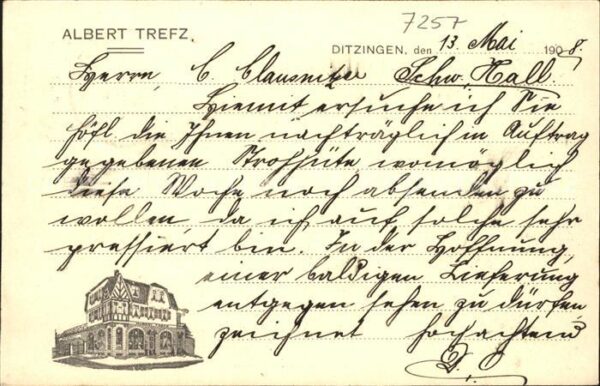 7257
ALBERT TREFZ.
DITZINGEN, den 13. Mai 1908.
Herrn C. Clausnitzer Schw. Hall
Hiermit ersuche ich Sie
höfl. die Ihnen nachträglich in Auftrag
gegebenen Strohhüte womöglich
diese Woche noch absenden zu
wollen, da ich auf solche sehr
pressiert bin. In der Hoffnung,
einer baldigen Lieferung
entgegen sehen zu dürfen,
zeichnet hochachtend